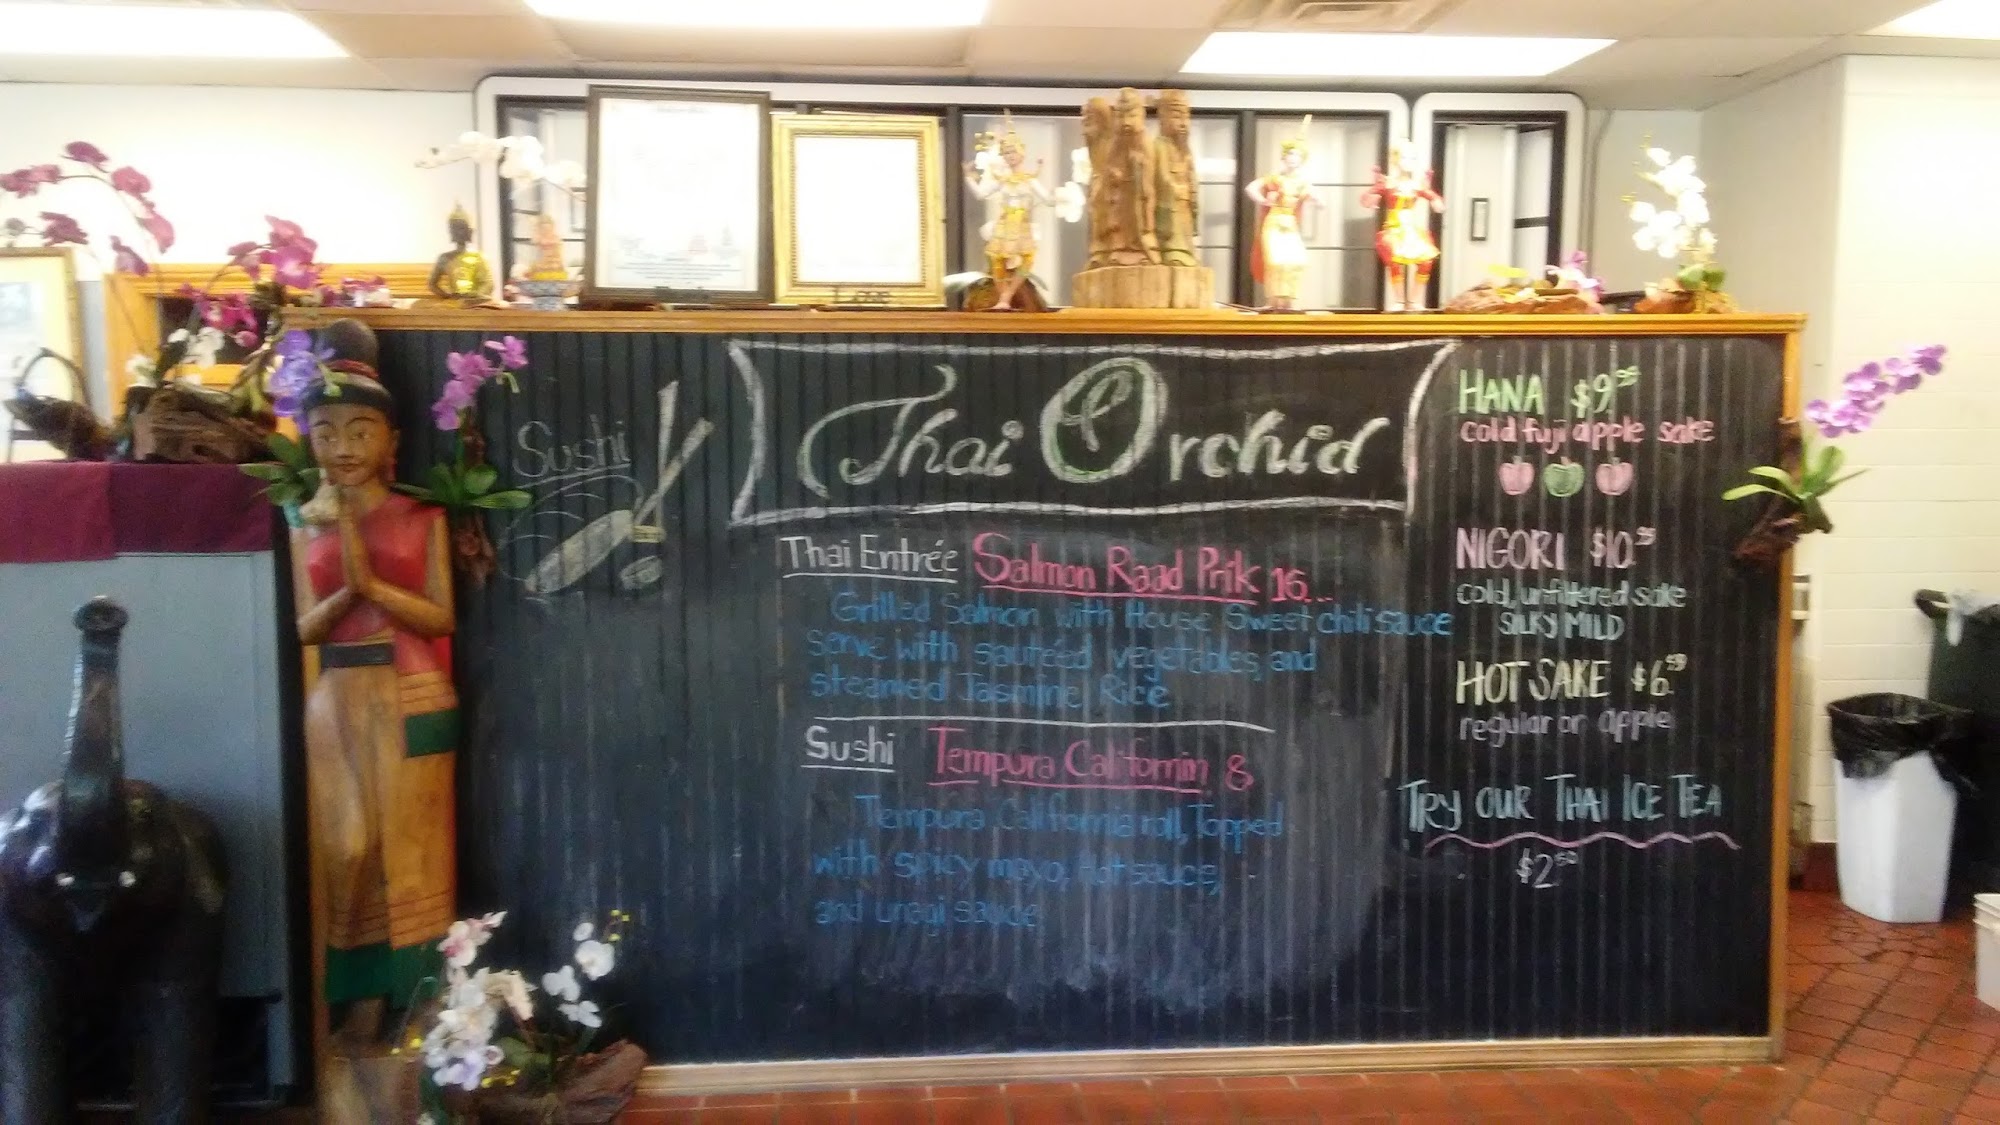 Sushi
Thai Orchid
Thai Entrée Salmon Raad Prik 16...
Grilled Salmon with House Sweet chili sauce
serve with sautéed vegetables, and
steamed Jasmine Rice
Sushi Tempura Californin 8
Tempura California roll, Topped
with spicy mayo, Hot sauce,
and unagi sauce
HANA $9.95
cold fuji apple sake
NIGORI $10.95
cold, unfiltered sake
SILKY MILD
HOT SAKE $6.50
regular or apple
TRY OUR THAI ICE TEA
$2.50